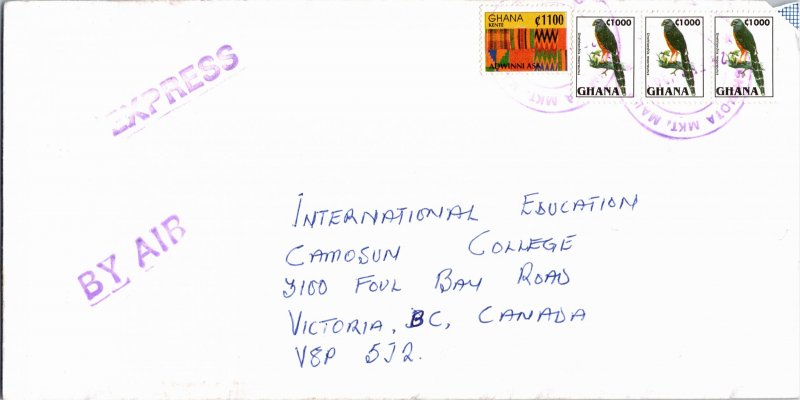 GHANA ¢1100
KENTE
ADWINNI ASA
¢1000
GHANA
¢1000
GHANA
¢1000
GHANA
MKT.
MKT. MA
EXPRESS
BY AIR
INTERNATIONAL EDUCATION
CAMOSUN COLLEGE
3100 FOUL BAY ROAD
VICTORIA, BC, CANADA
V8P 5J2.